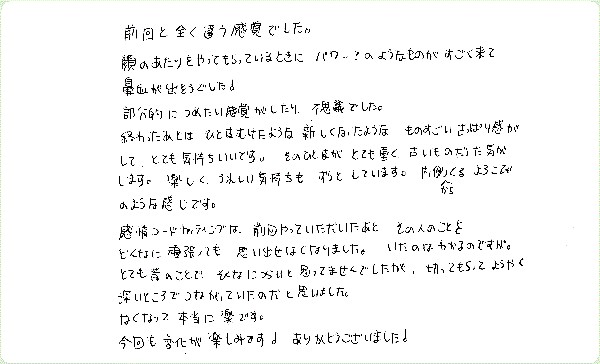 前回と全く違う感覚でした。
顔のあたりをやってもらっているときに パワー?のようなものがすごく来て
鼻血が出そうでした!
部分的につめたい感覚がしたり、不思議でした。
終わったあとは ひと皮むけたような 新しくなったような ものすごいさっぱり感が
して、とても気持ちいいです。 そのひと皮が とても重く 古いものだった気が
します。 楽しく、うれしい気持ちも ずっとしています。 内側からくる よろこび
のような感じです。
感情コードカッティングは、前回やっていただいたあと その人のことを
どんなに頑張っても 思い出せなくなりました。 いたのはわかるのですが。
とても昔のことで そんなにつらいと思ってませんでしたが、切ってもらって ようやく
深いところでつながっていたのだと思いました。
なくなって 本当に楽です。
今回も変化が楽しみです! ありがとうございました!